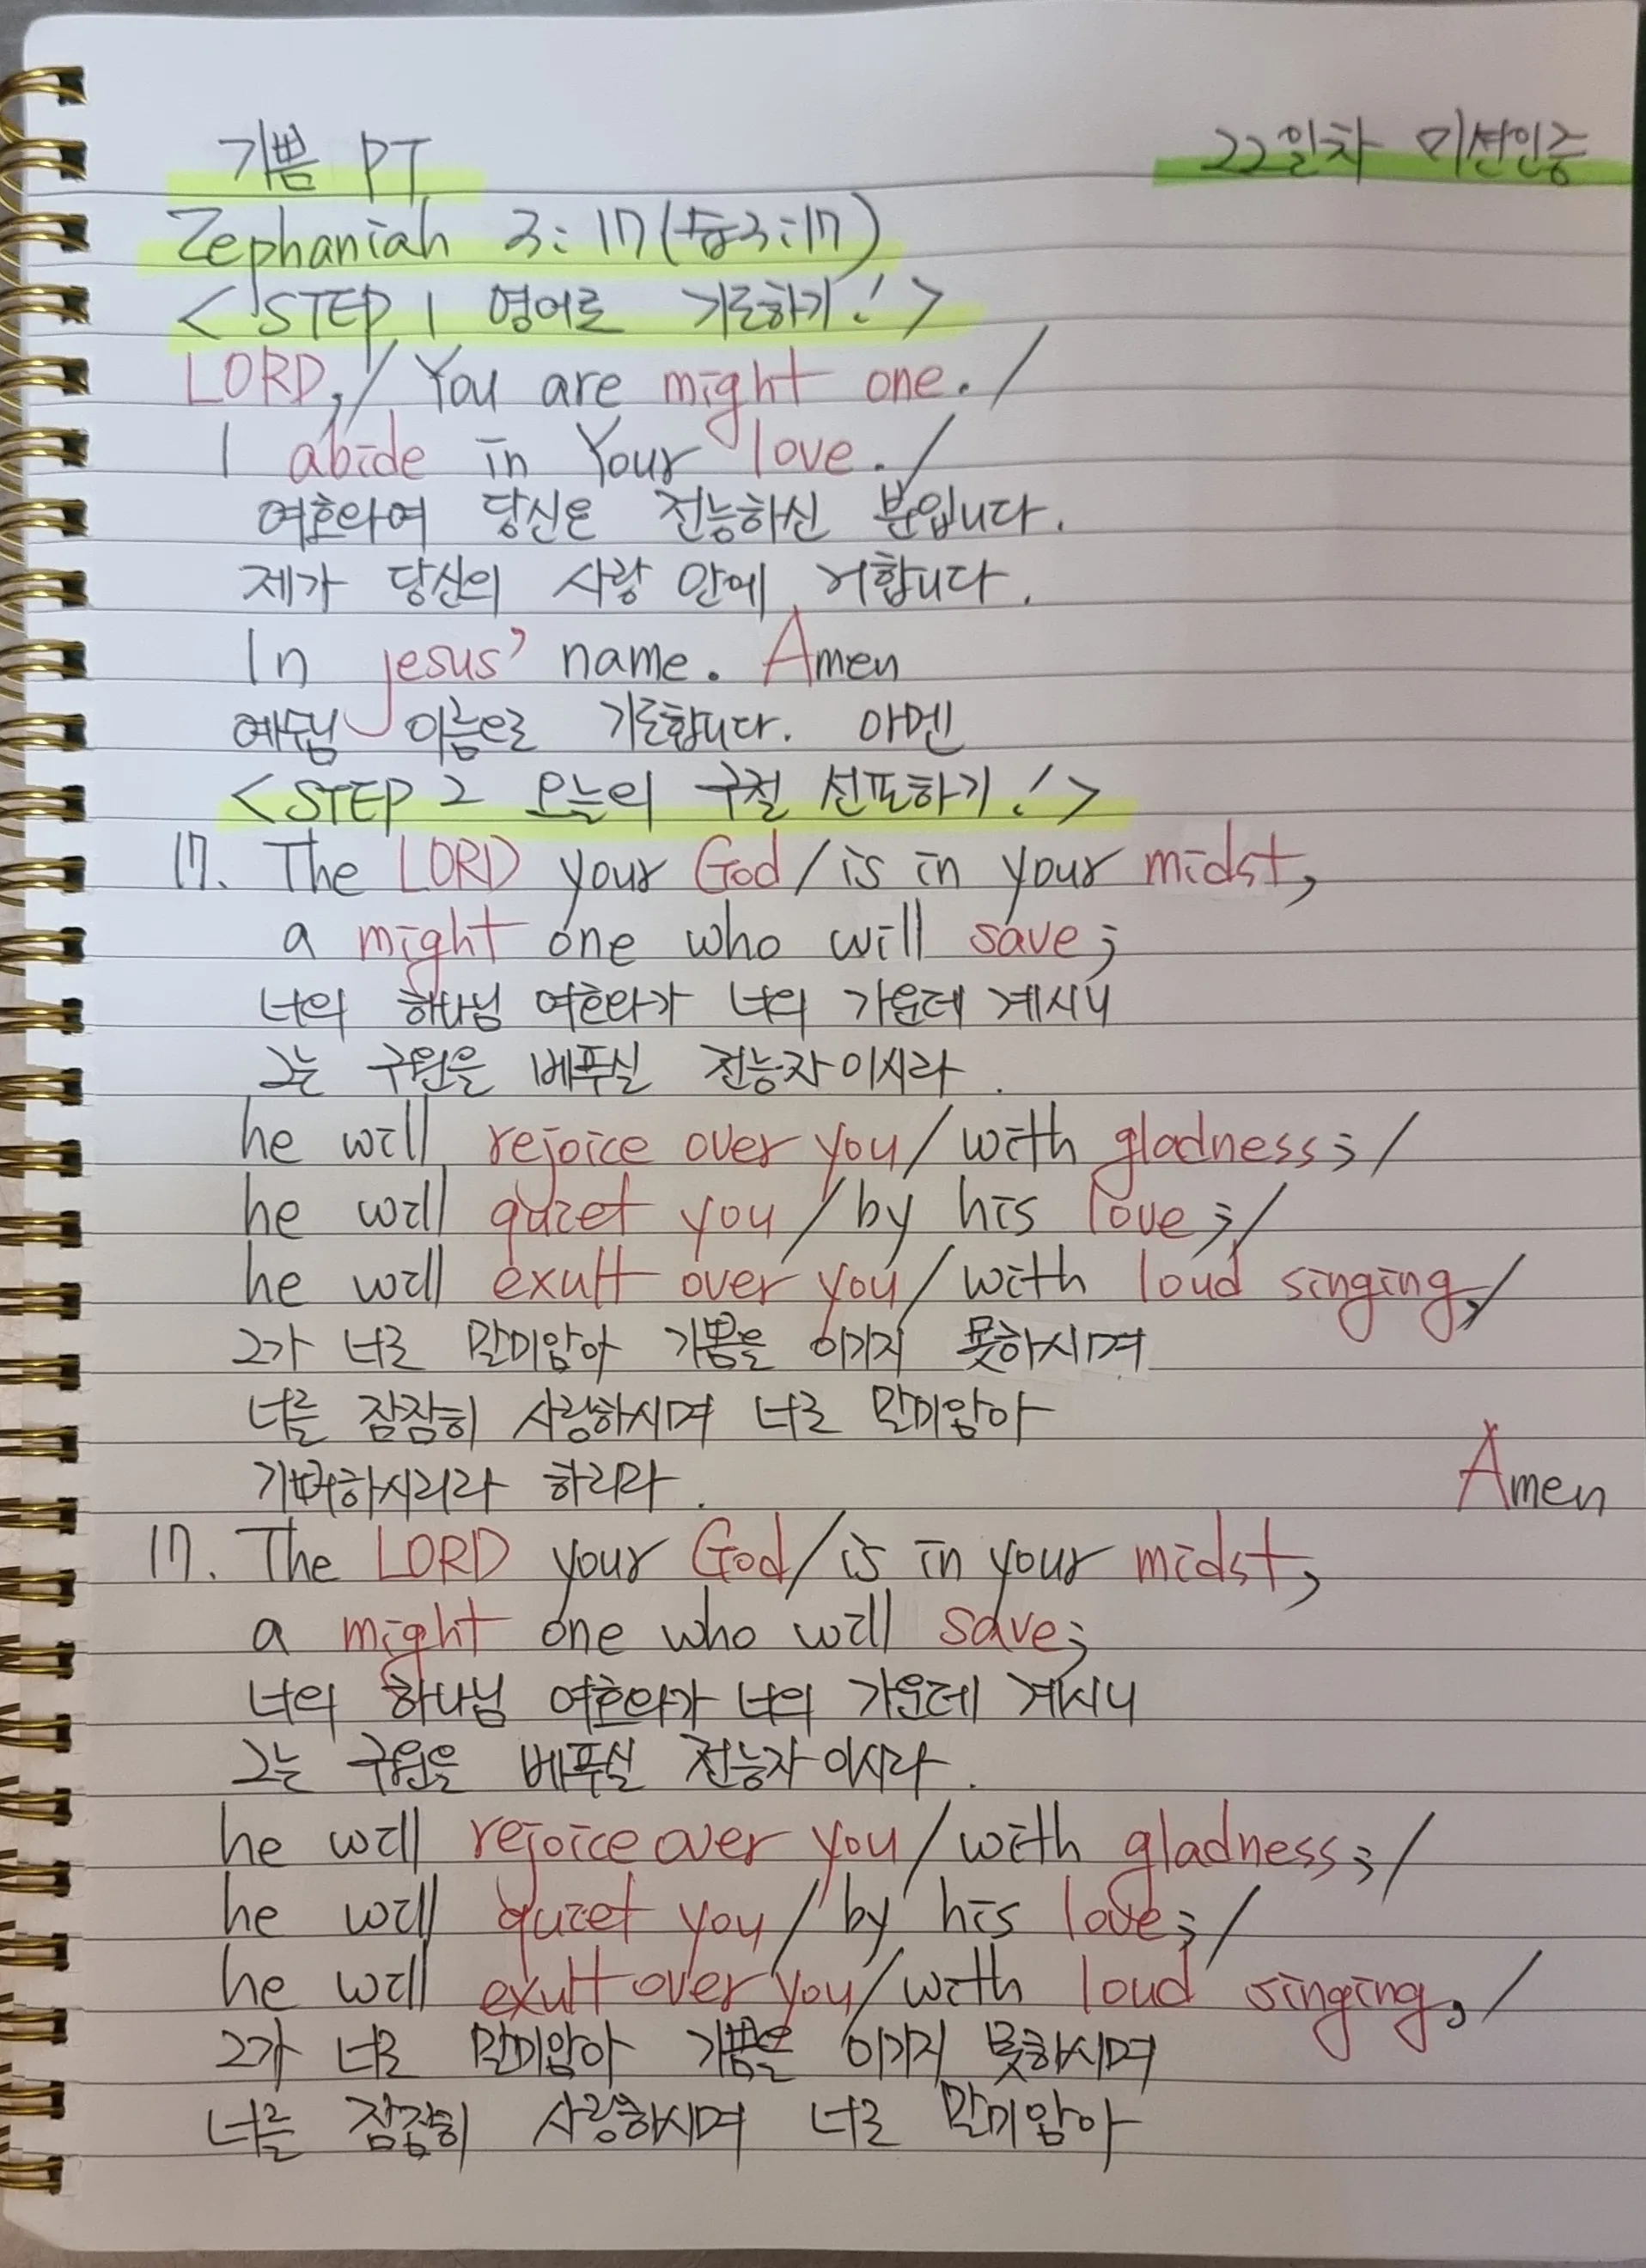 기쁨 PT
22일차 미션인증
Zephaniah 3:17(습3:17)
<STEP 1 영어로 기도하기!>
LORD,/ You are might one./
I abide in Your love./
여호와여 당신은 전능하신 분입니다.
제가 당신의 사랑 안에 거합니다.
In jesus' name. Amen
예수님 이름으로 기도합니다. 아멘
<STEP 2 오늘의 구절 선포하기!>
17. The LORD your God/is in your midst,
a might one who will save;
너의 하나님 여호와가 너의 가운데 계시니
그는 구원을 베푸실 전능자이시라.
he will rejoice over you/with gladness;/
he will quiet you/by his love;/
he will exult over you/with loud singing,/
그가 너로 말미암아 기쁨을 이기지 못하시며
너를 잠잠히 사랑하시며 너로 말미암아
기뻐하시리라 하리라.
Amen
17. The LORD your God/is in your midst,
a might one who will save;
너의 하나님 여호와가 너의 가운데 계시니
그는 구원을 베푸실 전능자이시라.
he will rejoice over you/with gladness;/
he will quiet you/by his love;/
he will exult over you/with loud singing,/
그가 너로 말미암아 기쁨을 이기지 못하시며
너를 잠잠히 사랑하시며 너로 말미암아